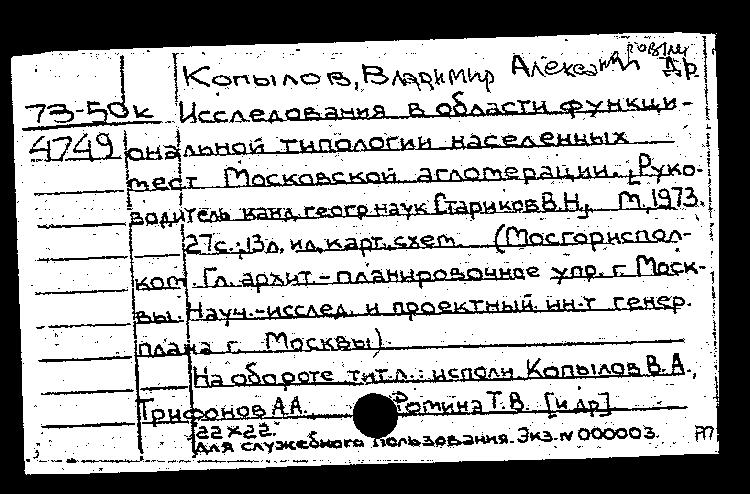 Копылов, Владимир Александрович
и др.
73-50к Исследования в области функци-
4749 ональной типологии населенных
мест Московской агломерации. [Руко-
водитель канд. геогр. наук Стариков В.Н.], М, 1973.
27с.; 13л. ил, карт, схем. (Мосгориспол-
ком. Гл. архит.-планировочное упр. г. Моск-
вы. Науч.-исслед. и проектный ин-т генер.
плана г. Москвы).
На обороте тит.л.: исполн. Копылов В.А.,
Трифонов А.А., Ромина Т.В. [и др]
22×22.
Для служебного пользования. Экз. № 000003.